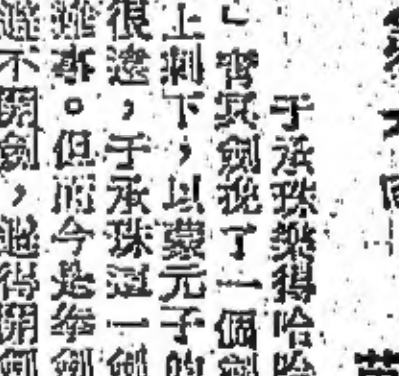 于承珠樂得哈哈
」霄冥劍挽了一個劍
上刺下，以蒙元子的
很遠，于承珠這一劍
難事。但而今是
避不開劍，避得開劍